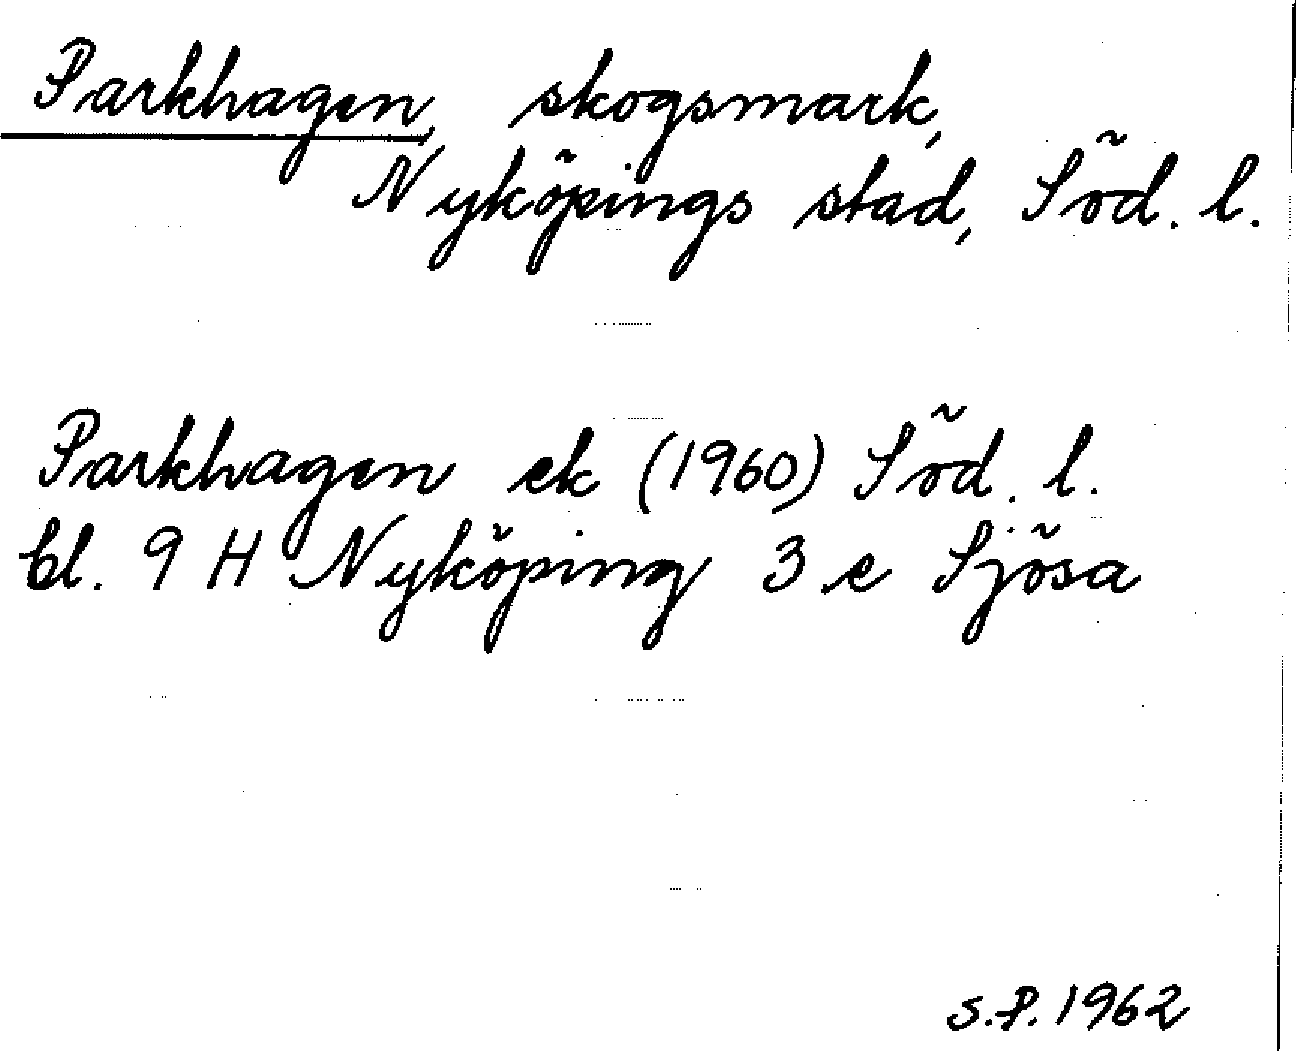 Parkhagen, skogsmark,
Nyköpings stad, Söd. l.
Parkhagen ek (1960) Söd. l.
bl. 9 H Nyköping 3 e Sjösa
S.P. 1962